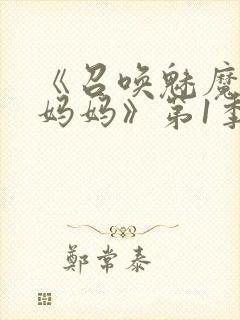 《召唤魅魔
妈妈》第1季
鄭常泰